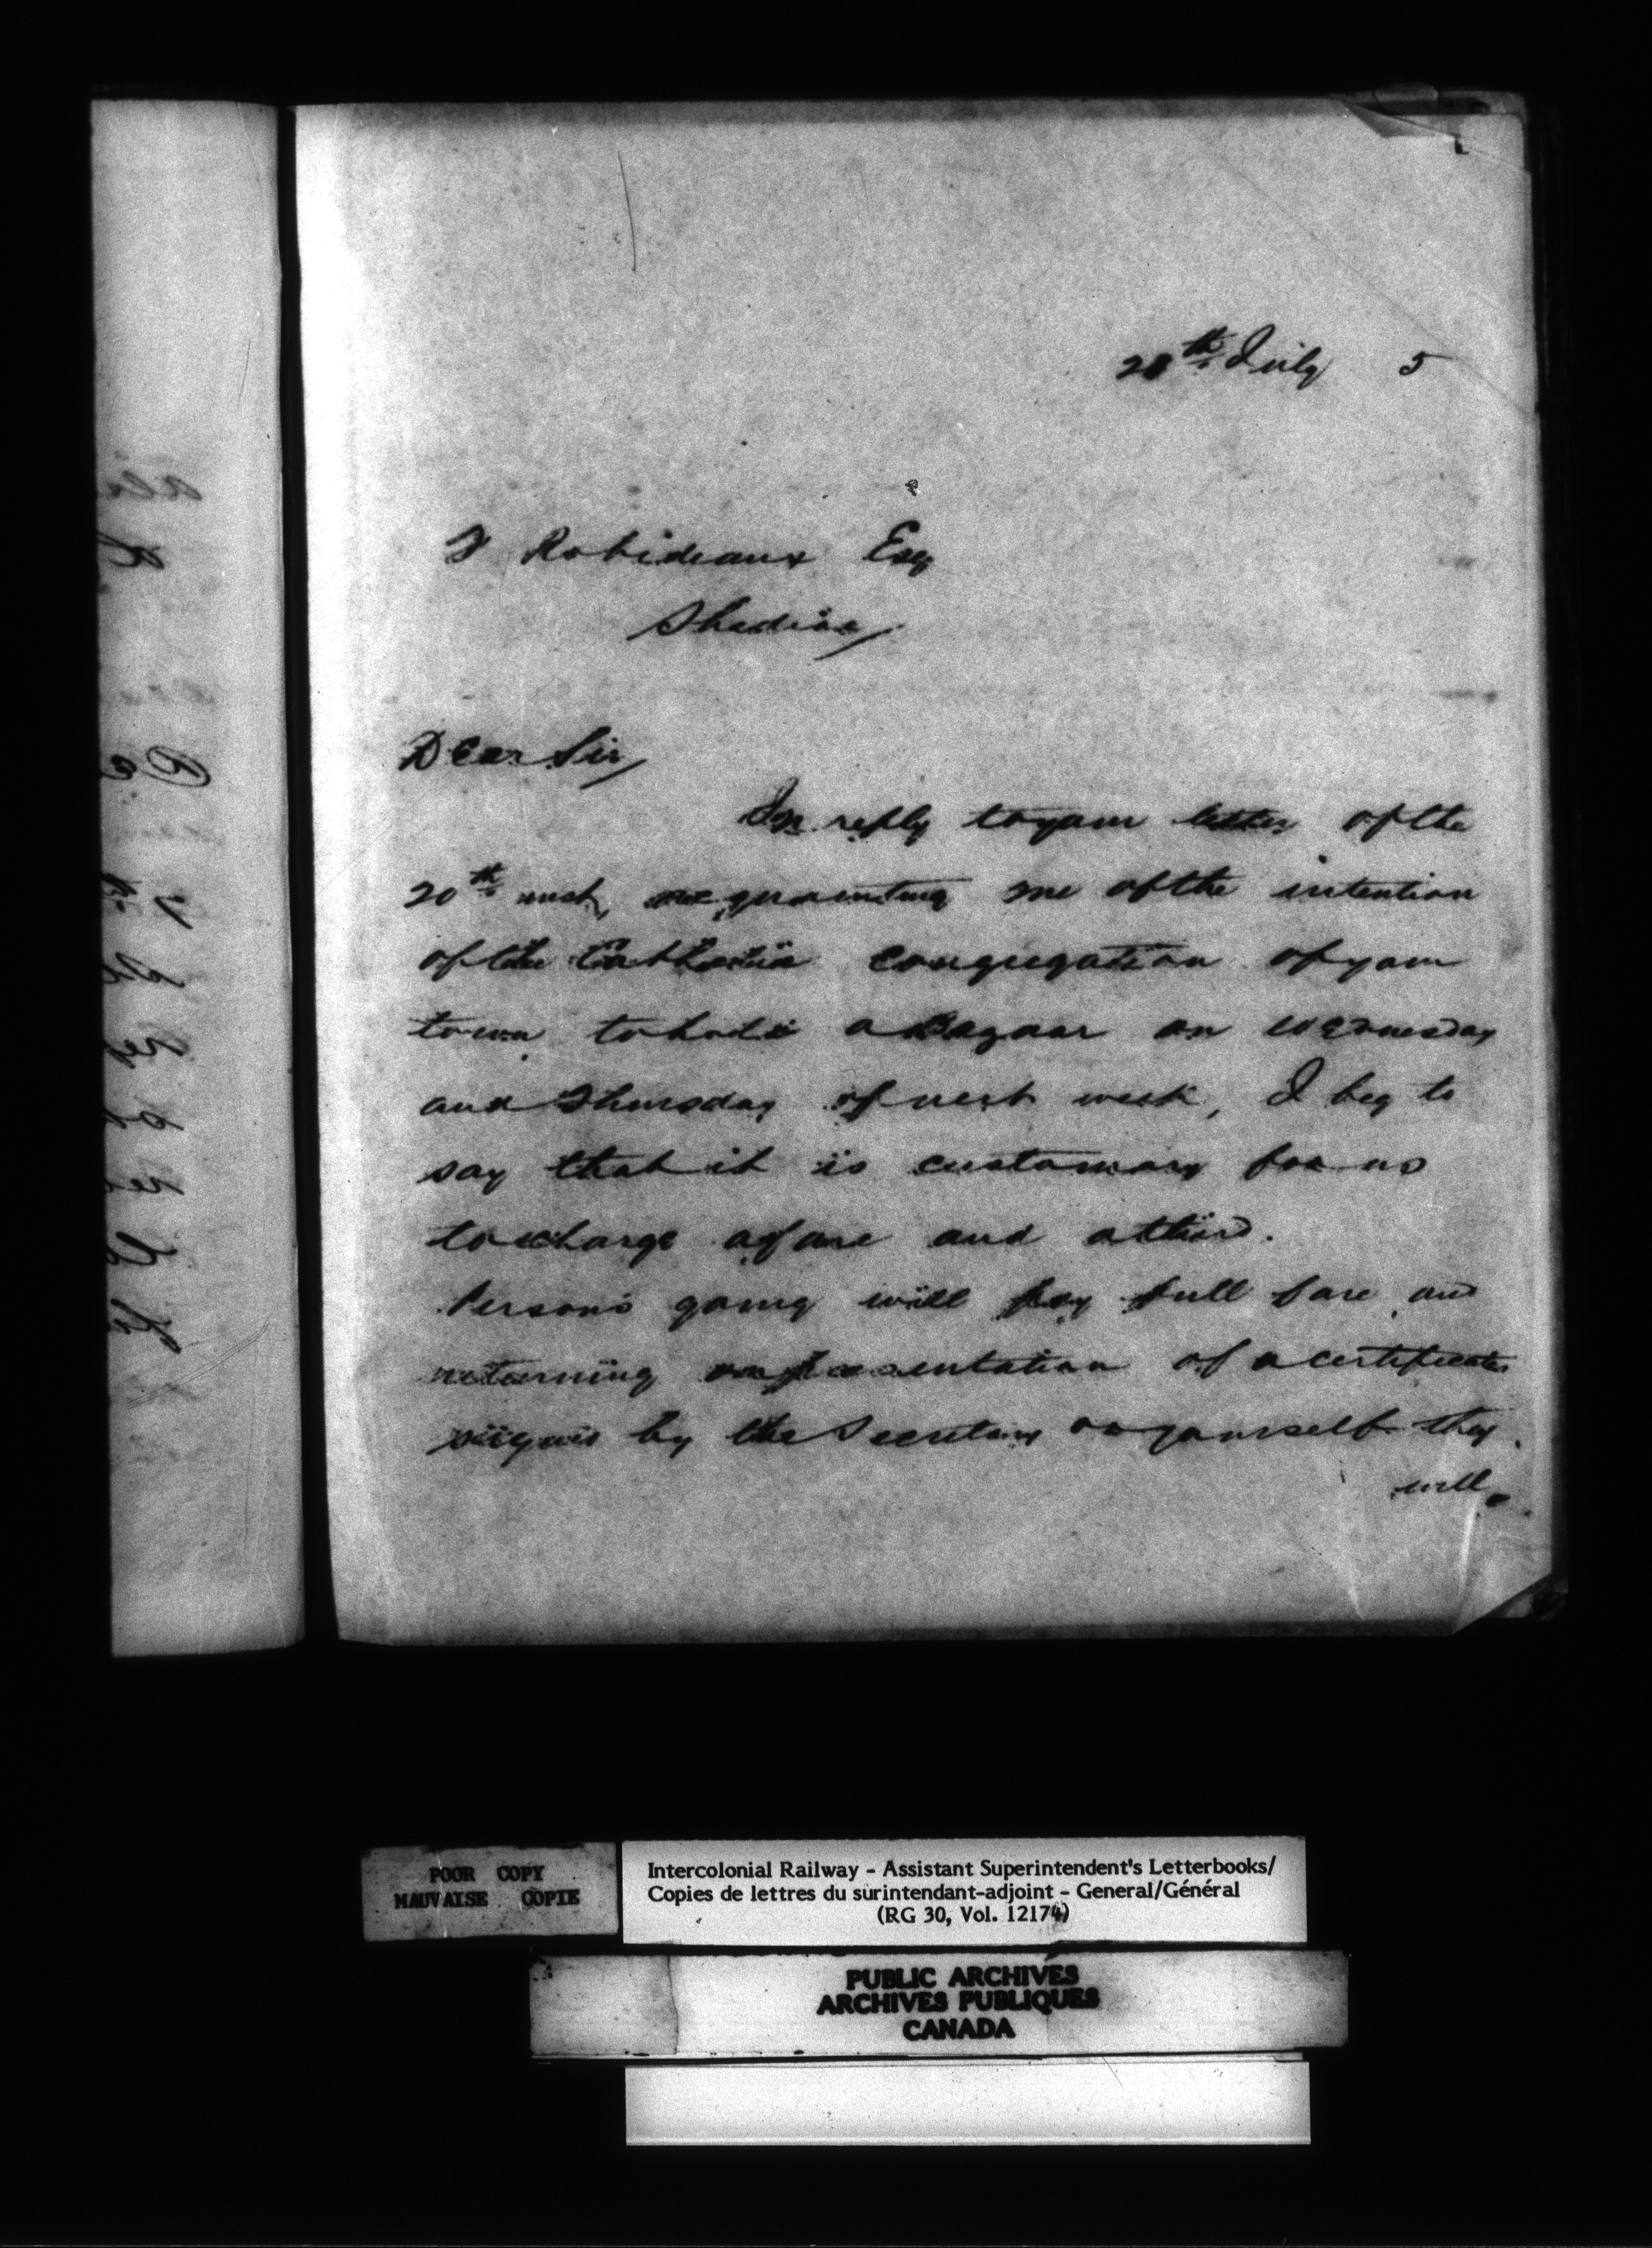 20th July 5
F Robideaux Esq
Shediac
Dear Sir
In reply to your letter of the
20th inst, acquainting me of the intention
of the Catholic congregation of your
town to hold a Bazaar on Wednesday
and Thursday of next week, I beg to
say that it is customary for us
to charge a fare and a third.
Persons going will pay full fare and
returning on presentation of a certificate
signed by the Secretary or yourself they
will
POOR COPY
MAUVAISE COPIE
Intercolonial Railway - Assistant Superintendent's Letterbooks/
Copies de lettres du surintendant-adjoint - General/Général
(RG 30, Vol. 12174)
PUBLIC ARCHIVES
ARCHIVES PUBLIQUES
CANADA